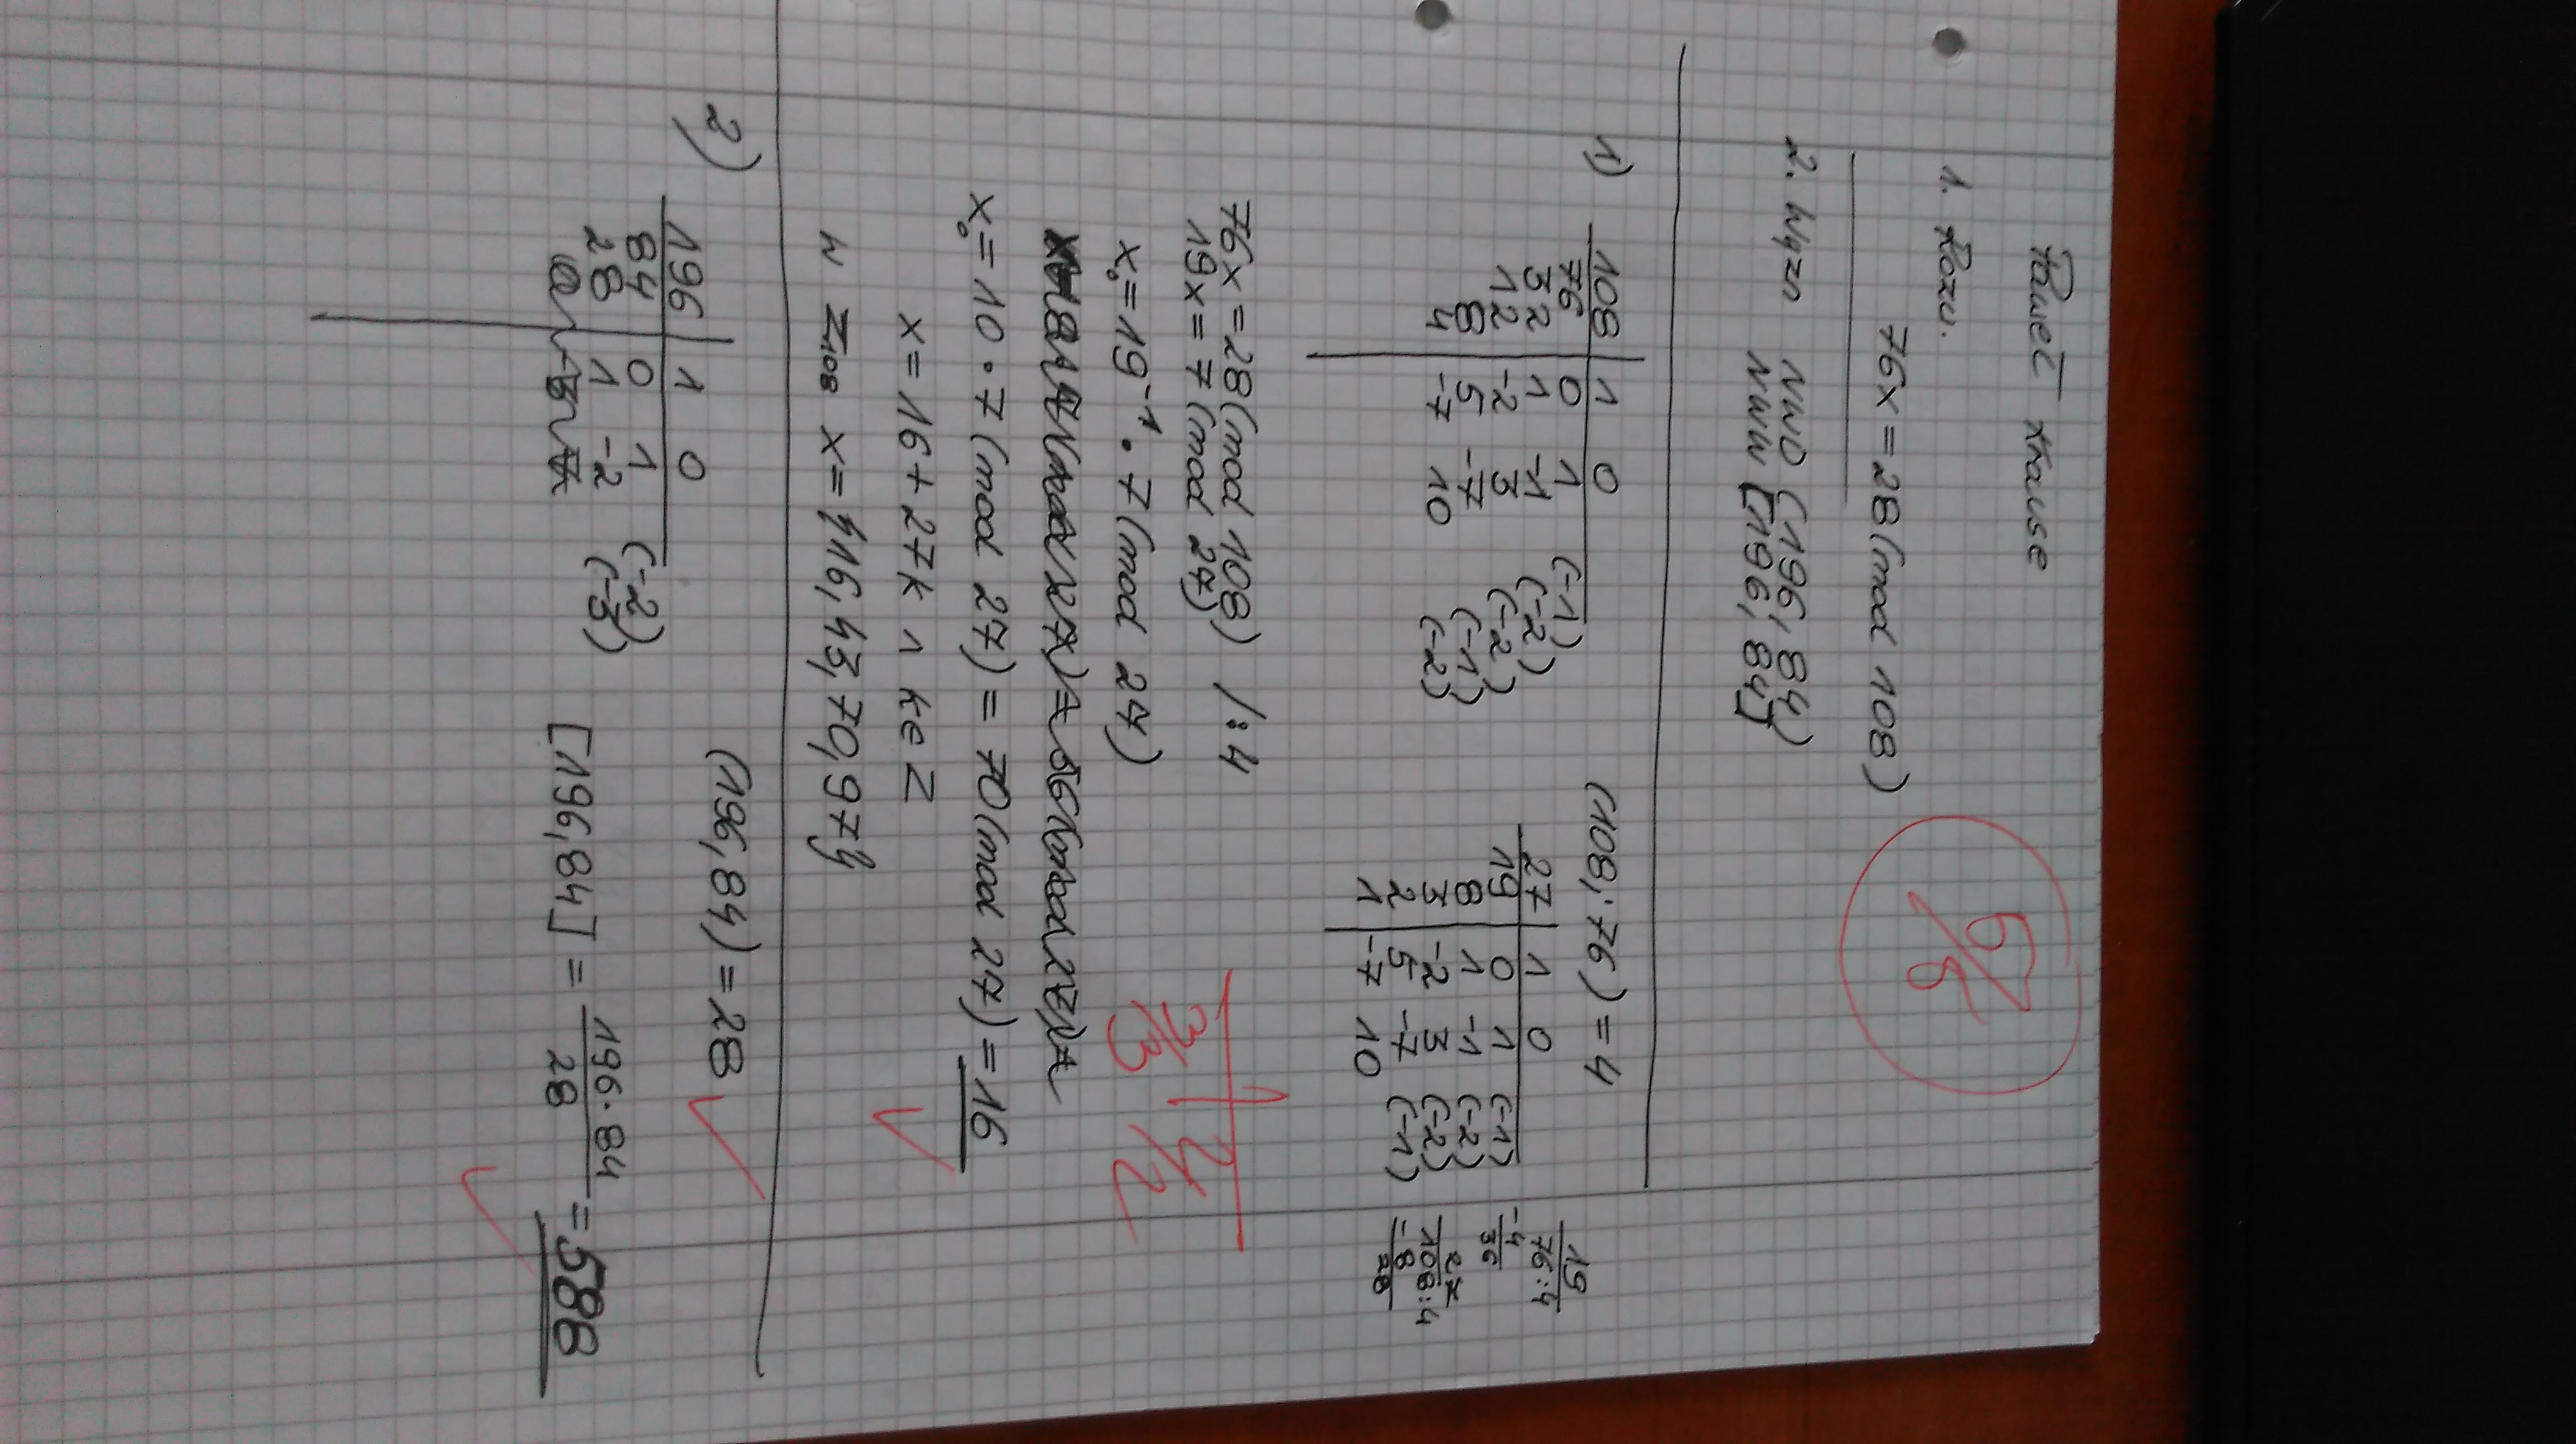 Paweł Krause
5/5
1. Rozw.
76x = 28 (mod 108)
2. Wyzn NWD (196, 84)
NWW [196, 84]
1)
108 | 1 0
76 | 0 1 (-1)
32 | 1 -1 (-2)
12 | -2 3 (-2)
8 | 5 -7 (-1)
4 | -7 10 (-2)
(108; 76) = 4
27 | 1 0
19 | 0 1 (-1)
8 | 1 -1 (-2)
3 | -2 3 (-2)
2 | 5 -7 (-1)
1 | -7 10
19
76:4
-4
36
27
108:4
-8
28
76x = 28 (mod 108) /:4
19x = 7 (mod 27)
x₀ = 19⁻¹ · 7 (mod 27)
1 2
3/3 2/2
x₀ = 10 · 7 (mod 27) = 70 (mod 27) = 16
x = 16 + 27k ∧ k ∈ Z
w Z₁₀₈ x = {16, 43, 70, 97}
2)
196 | 1 0
84 | 0 1 (-2)
28 | 1 -2 (-3)
(196, 84) = 28
[196, 84] = 196 · 84 / 28 = 588